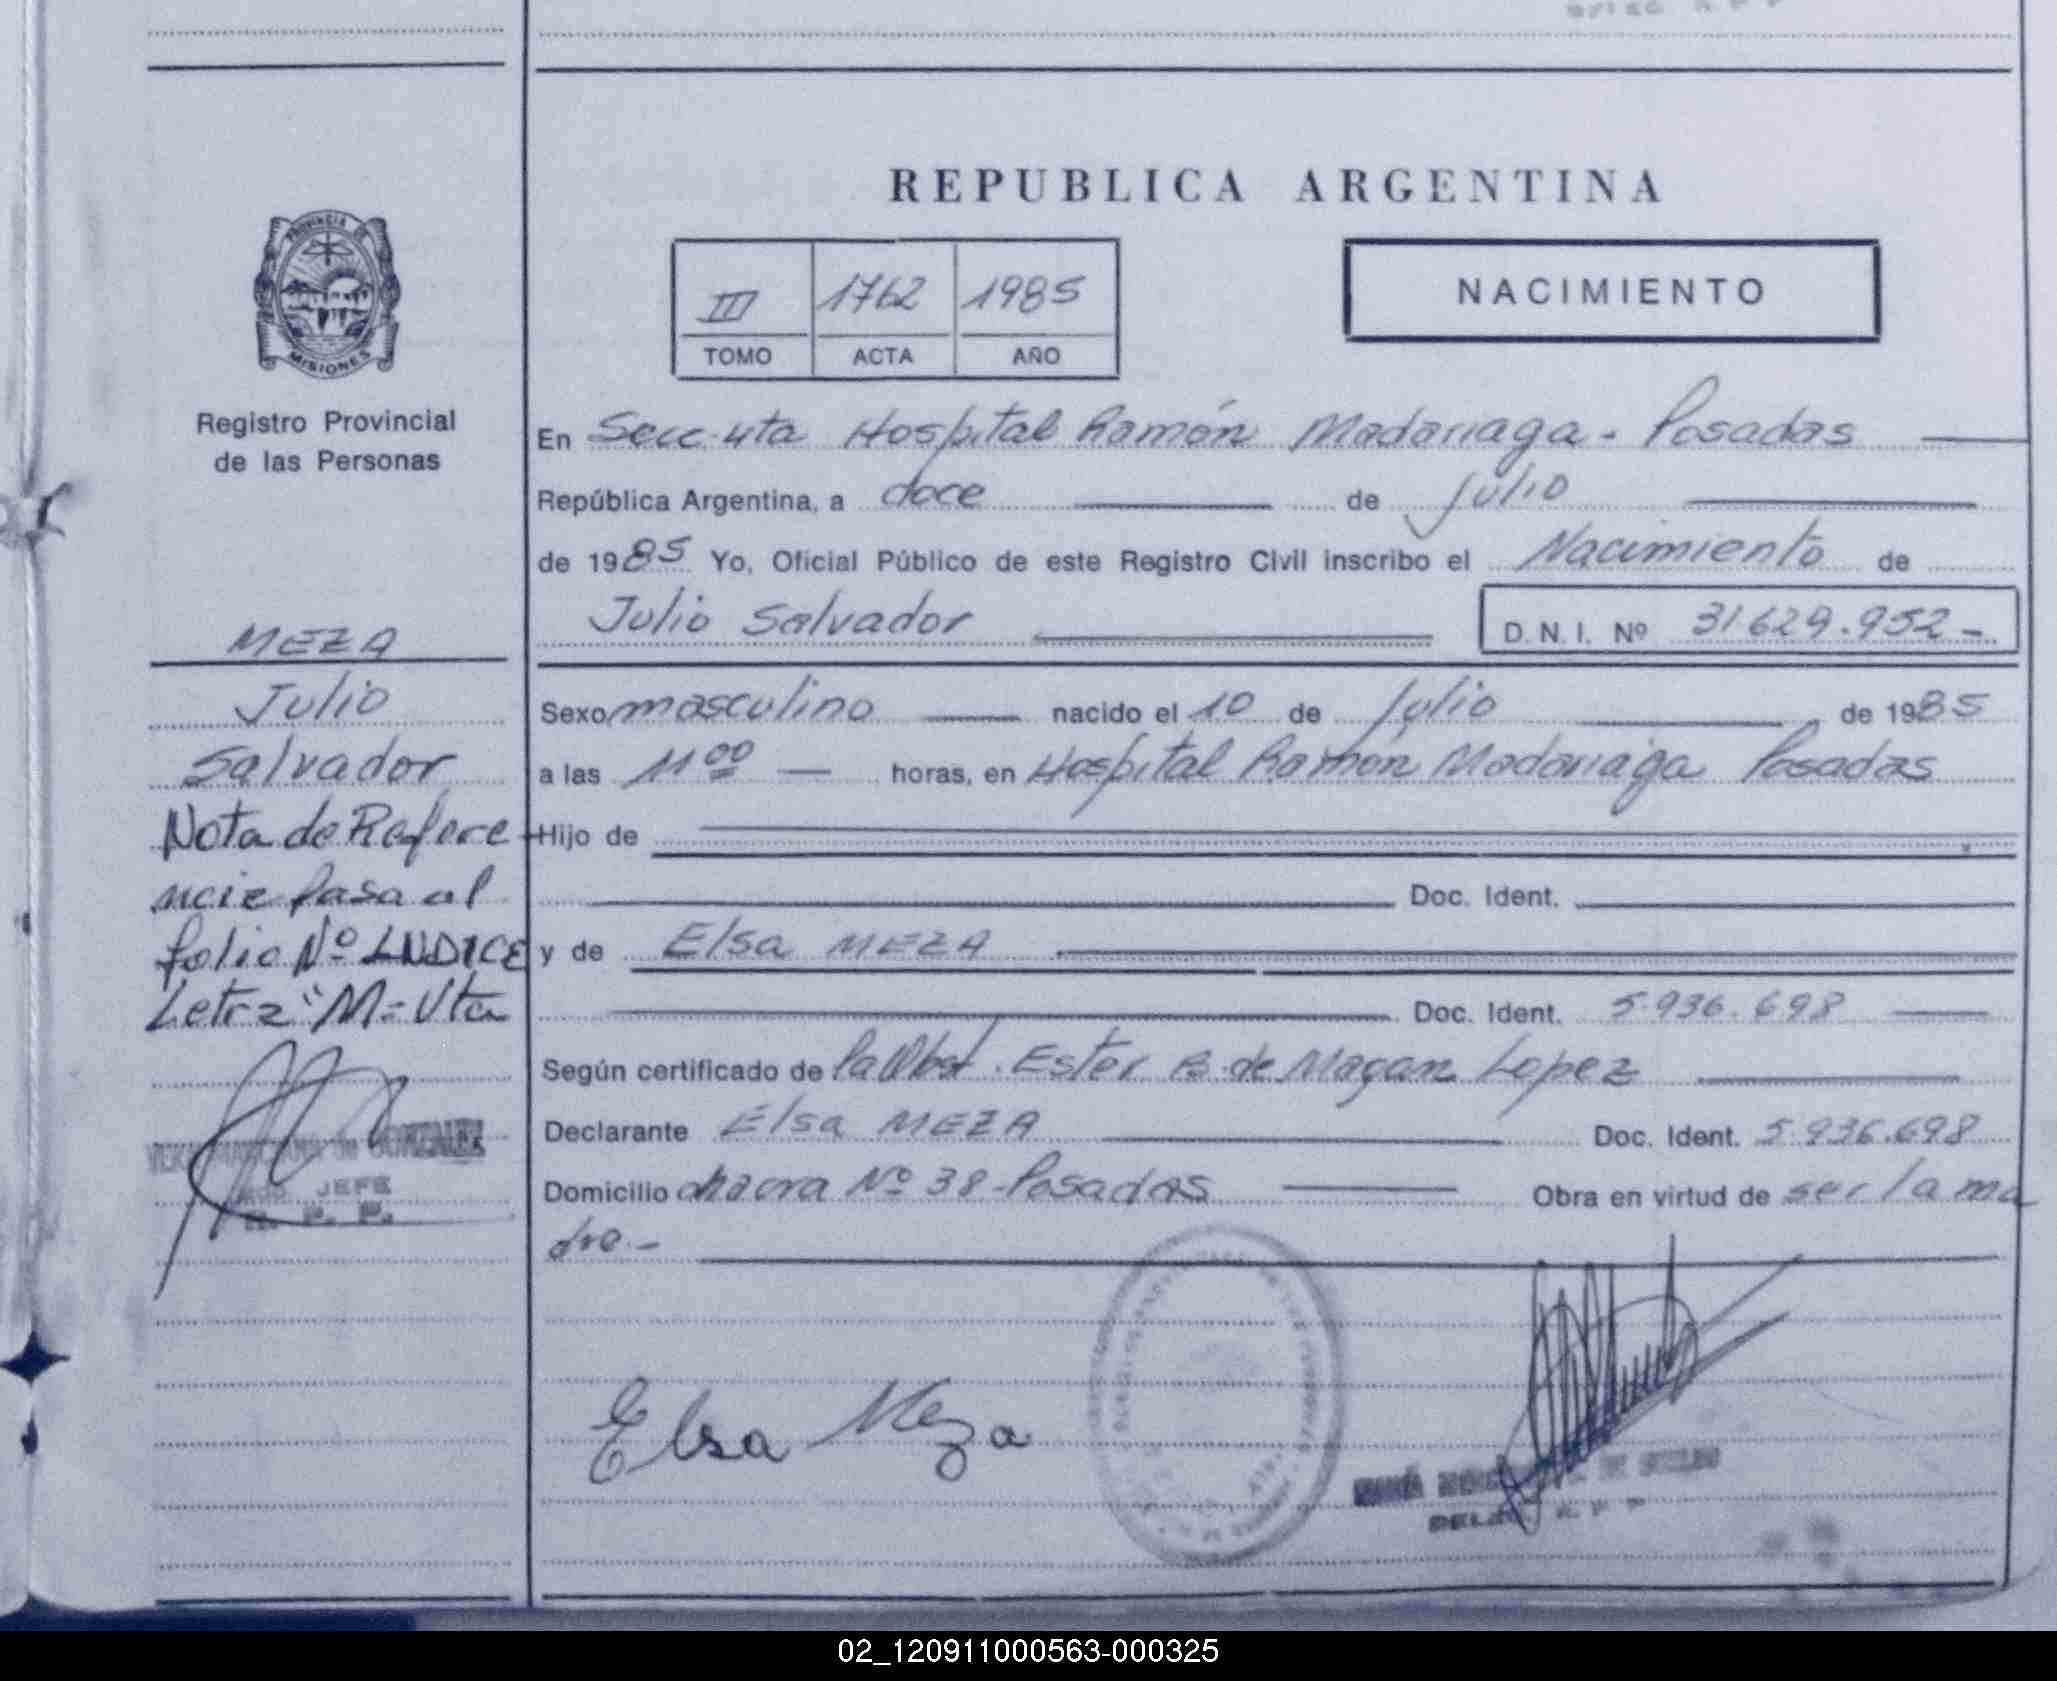 REPUBLICA ARGENTINA
PROVINCIA DE
MISIONES
Registro Provincial
de las Personas
III 1762 1985
TOMO ACTA AÑO
NACIMIENTO
En Secc. 4ta Hospital Ramón Madariaga - Posadas
República Argentina, a doce de julio
de 1985 Yo, Oficial Público de este Registro Civil inscribo el Nacimiento de
Julio Salvador D.N.I. Nº 31629.952-
MEZA
Julio
Salvador
Nota de Refere
ncia pasa al
folio Nº INDICE
Letra "M" Vta
JEFE
R. P. P.
Sexo masculino nacido el 10 de julio de 1985
a las 11 00 horas, en Hospital Ramón Madariaga Posadas
Hijo de
Doc. Ident.
y de Elsa MEZA
Doc. Ident. 5.936.698
Según certificado de la Obst. Ester B. de Magan Lopez
Declarante Elsa MEZA Doc. Ident. 5.936.698
Domicilio chacra Nº 38-Posadas Obra en virtud de ser la ma
dre.-
Elsa Meza
02_120911000563-000325